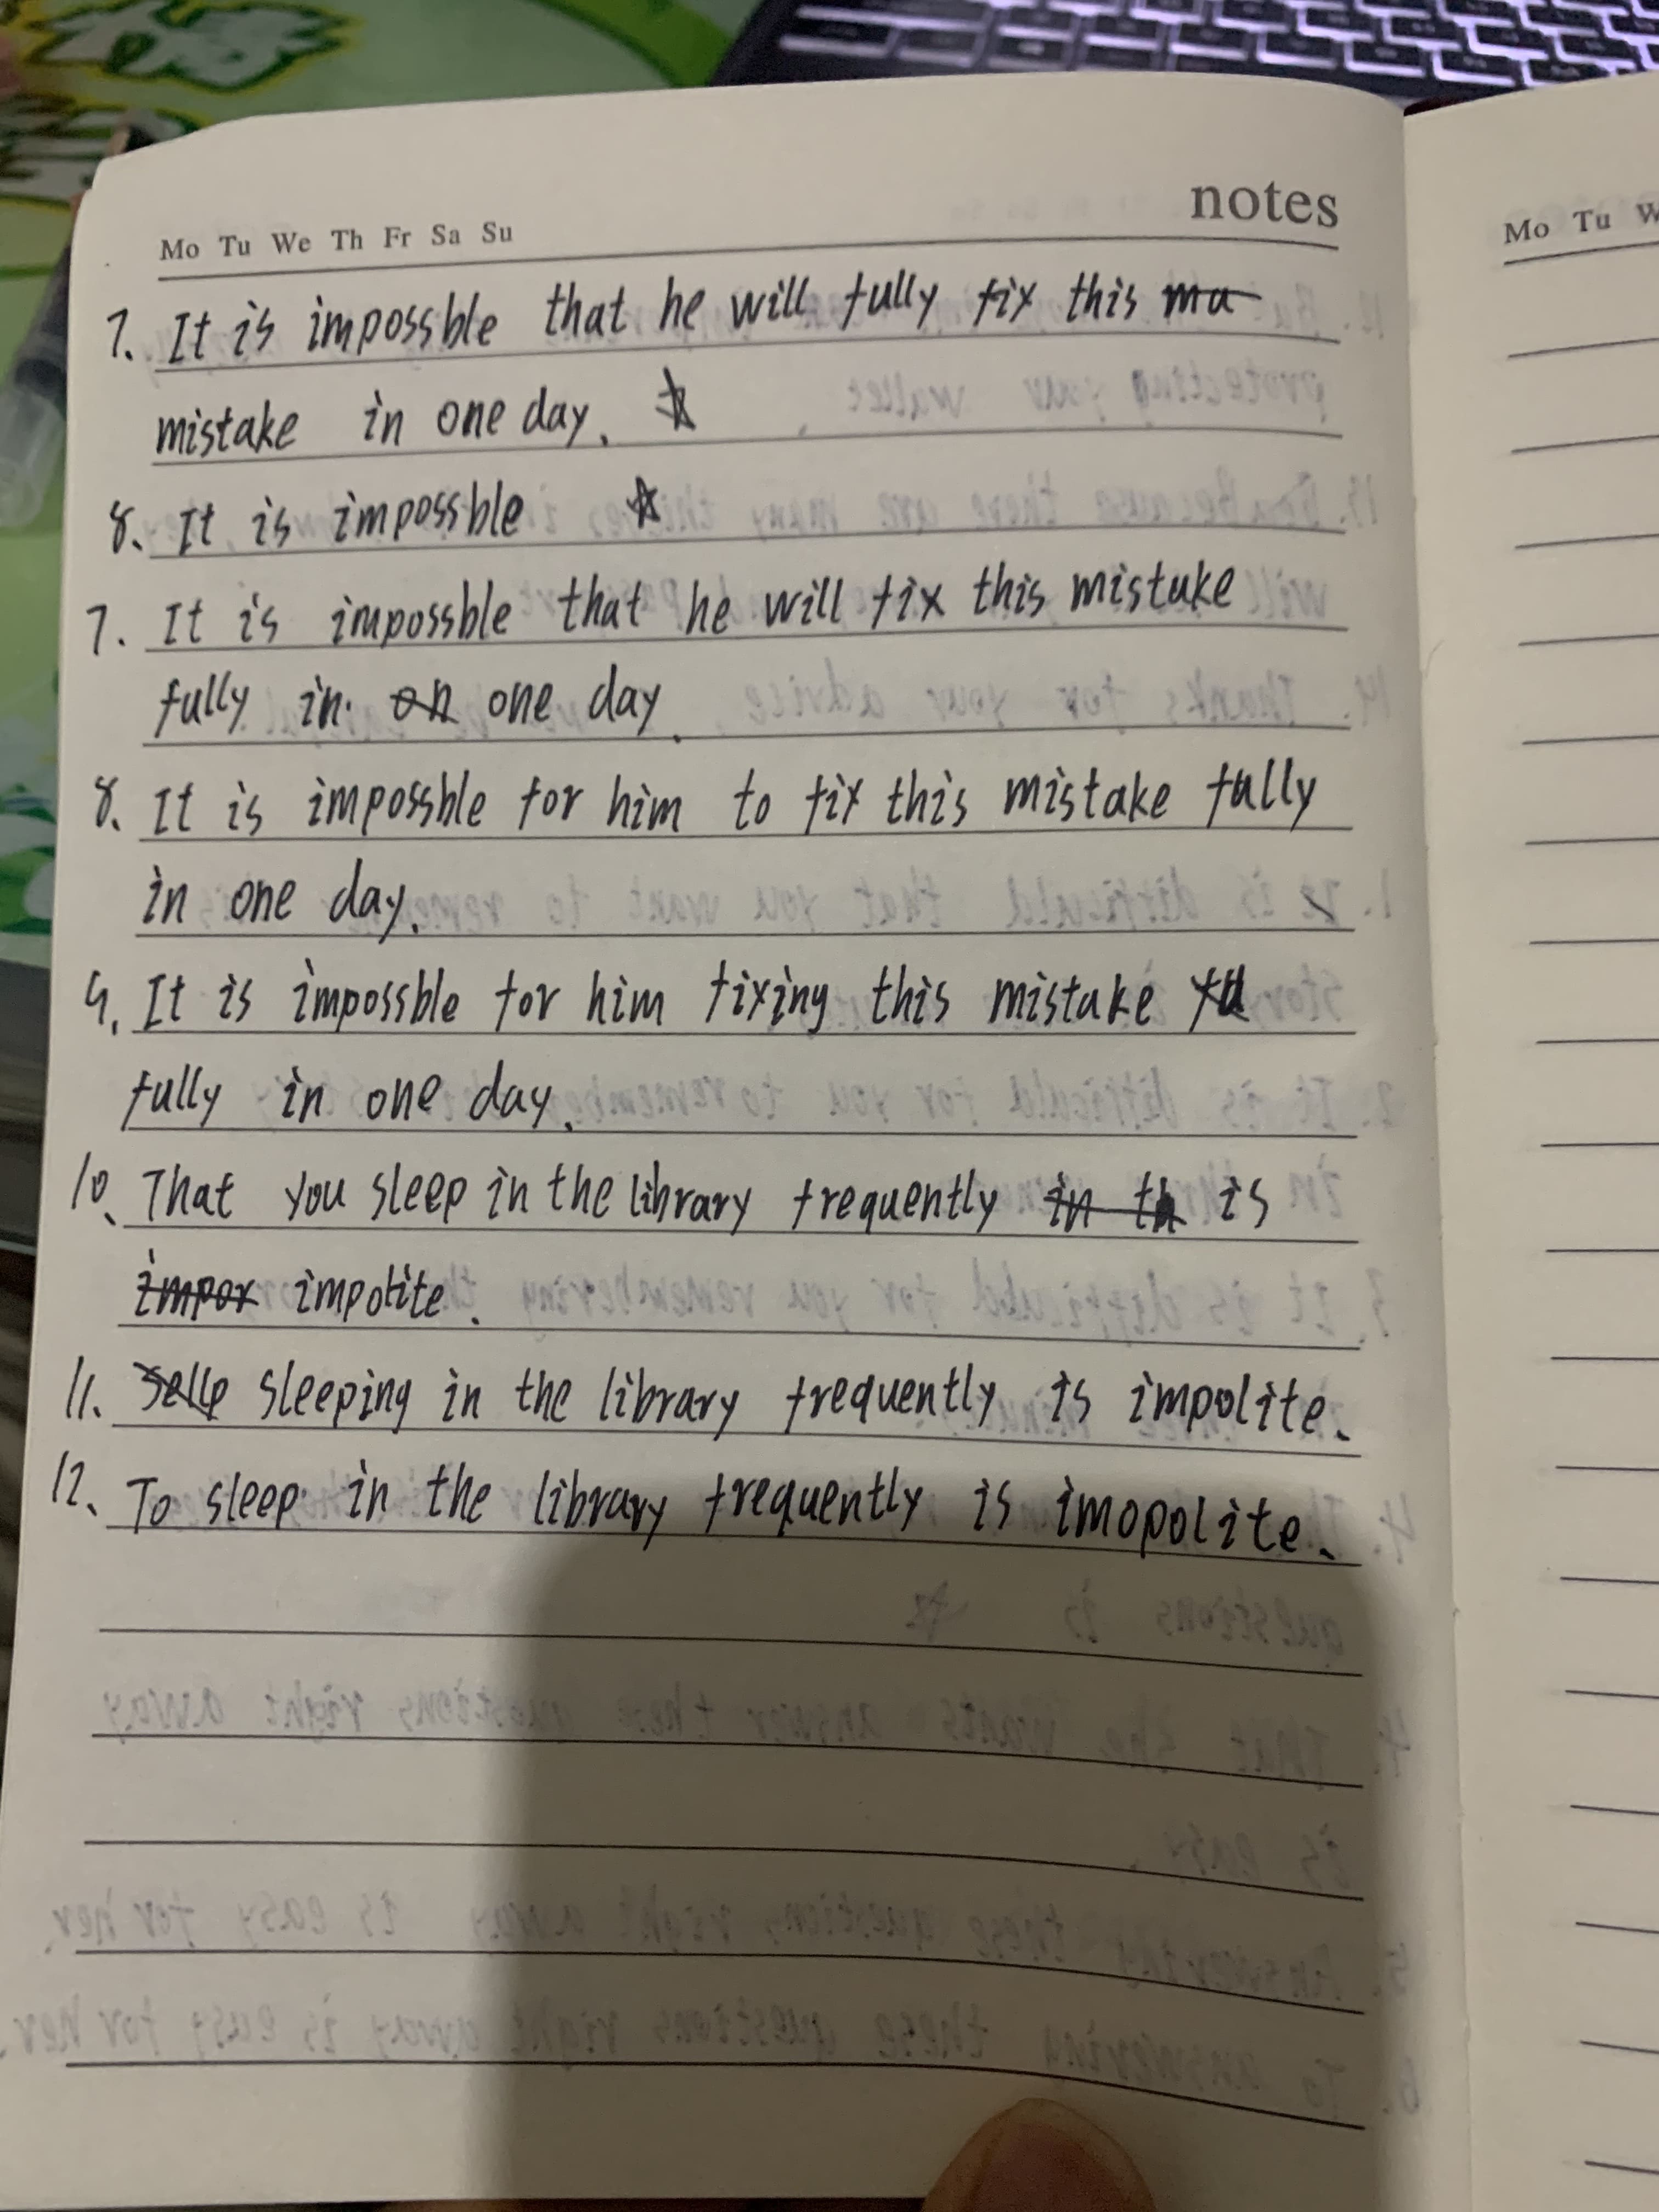 notes
Mo Tu We Th Fr Sa Su
7. It is impossble that he will fully fix this ma
mistake in one day.
8. It is impossble
7. It is impossble that he will fix this mistake
fully in on one day.
8. It is impossble for him to fix this mistake fully
in one day.
9. It is impossble for him fixing this mistake fu
fully in one day.
10. That you sleep in the library frequently in th is
impor impolite.
11. Selle sleeping in the library frequently is impolite.
12. To sleep in the library frequently is imopolite.
Mo Tu W